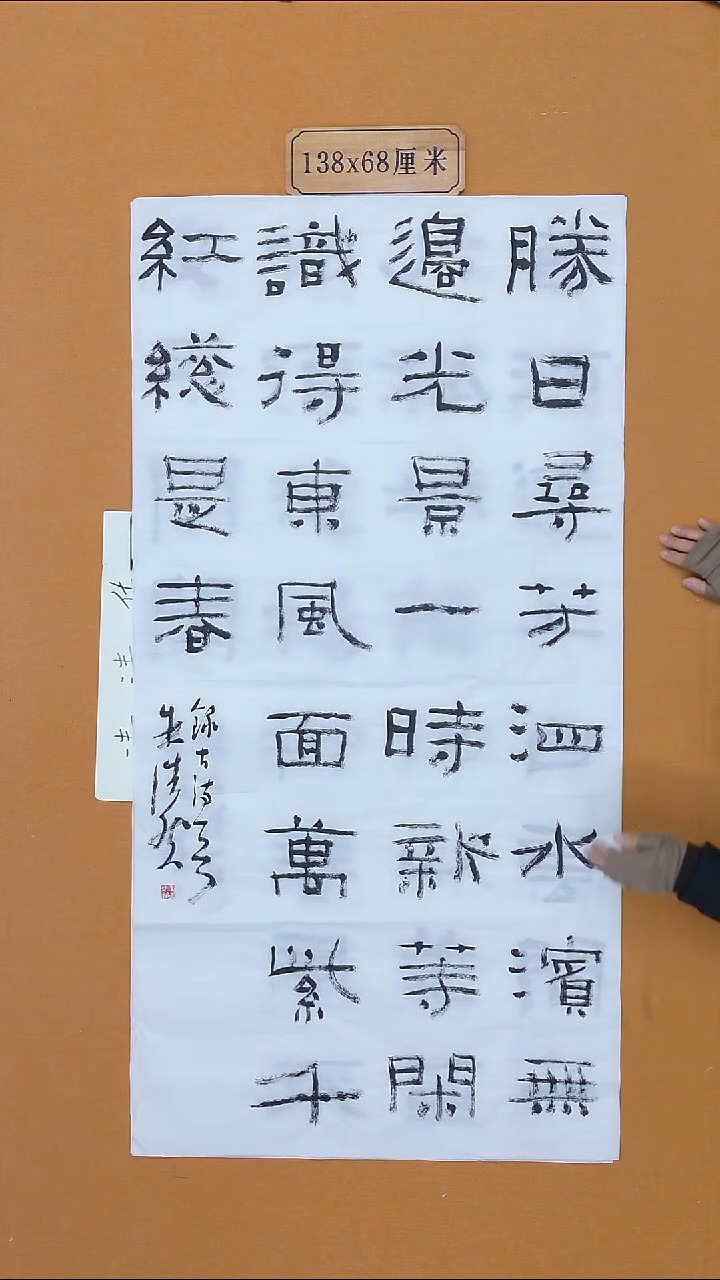 138x68厘米
勝日尋芳泗水濱無
邊光景一時新等閑
識得東風面萬紫千
紅總是春
錄古詩一首